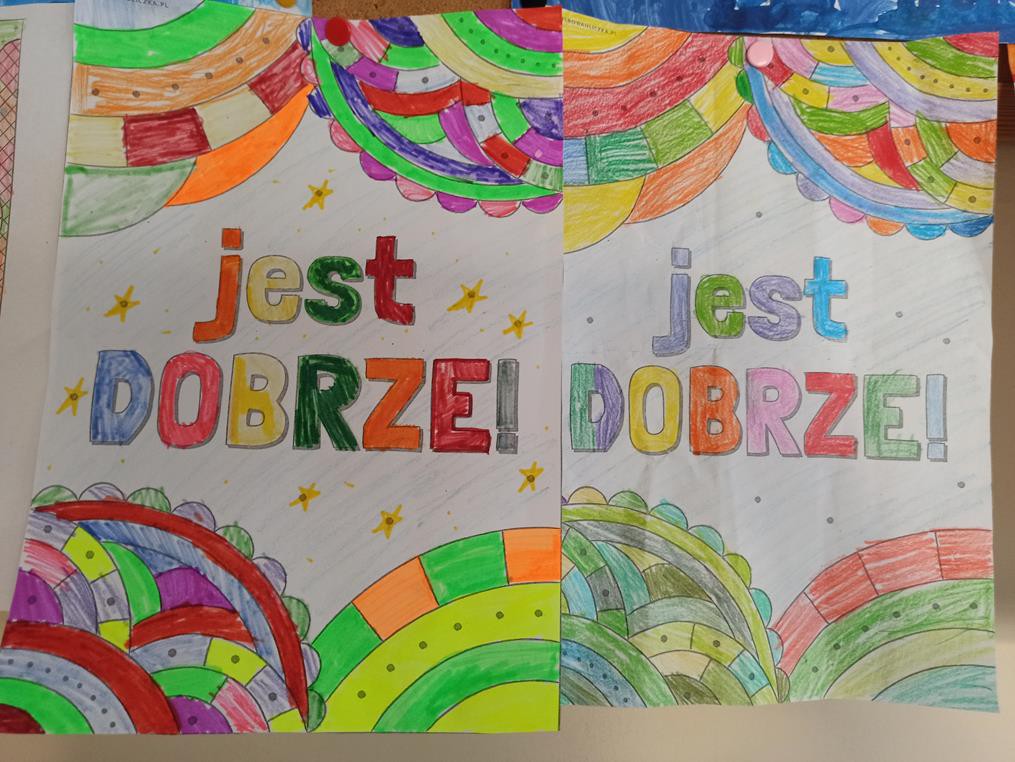 jest
DOBRZE!
jest
DOBRZE!